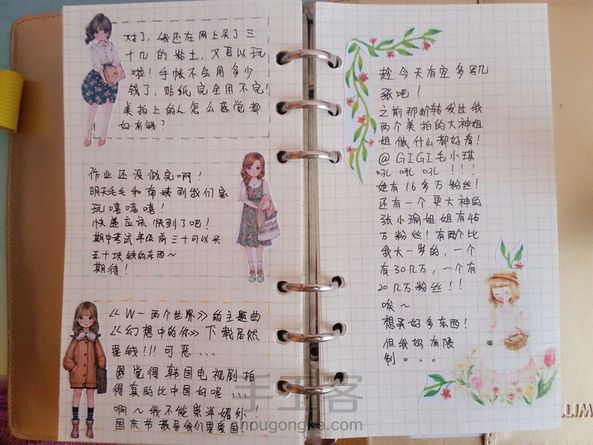 对了,我还在网上买了三
十几的粘土,又可以玩
啦!手帐不会用多少
钱了,贴纸完全用不完!
美拍上的人怎么感觉都
好有钱?
作业还没做完啊!
明天毛毛和 到我们家
玩嘻嘻嘻!
快递应该快到了吧!
期中考试年级前三十可以买
五十块钱的东西~
期待!
《W-两个世界》的主题曲
《幻想中的你》下载居然
要钱!!!可恶...
感觉得韩国电视剧拍
得真的比中国好呢...
啊~我不能崇洋媚外!
国庆节 我们要爱国!
趁今天有空多写几
张吧!
之前那个转发出我
两个美拍的大神姐
姐做什么都好看!
@GIGI毛小琪
吼吼吼!!!
她有16多万粉丝!
还有一个更大神的
张小瑜姐姐有46
万粉丝!有两个比
我大一岁的,一个
有30几万,一个有
20几万粉丝!!
唉~
想买好多东西!
但我妈有限
制。。。
手工客
hougongke.com
LLIM